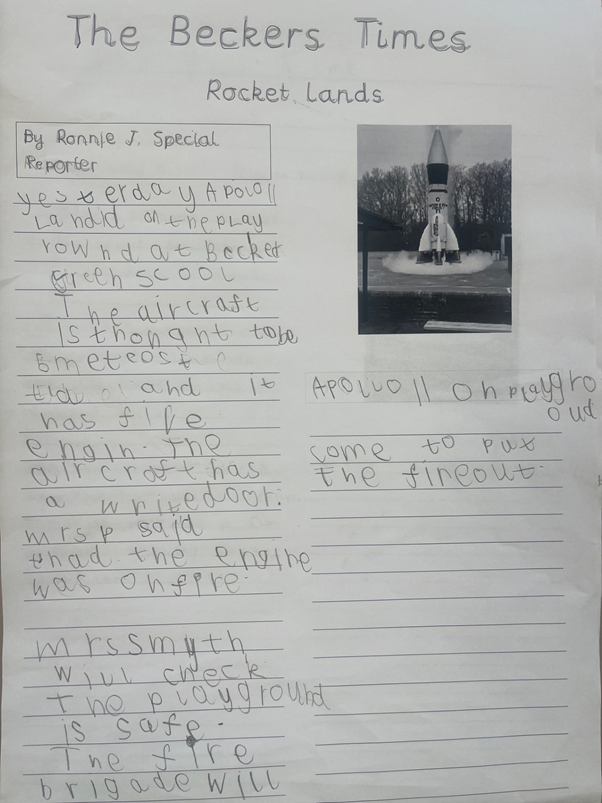 The Beckers Times
Rocket lands
By Ronnie J. Special
Reporter
yesterday Apololl
Landid on the play
rownd at Becker
Green scool
The aircraft
is thonght tobe
6meteost
and it
has five
engin. The
aircraft has
a writedoor.
mrs p said
thad the engine
was onfire.
mrssmyth
will check
the playground
is safe.
The fire
brigade will
APOLLO 11 on playgro
oud
come to put
the fireout.